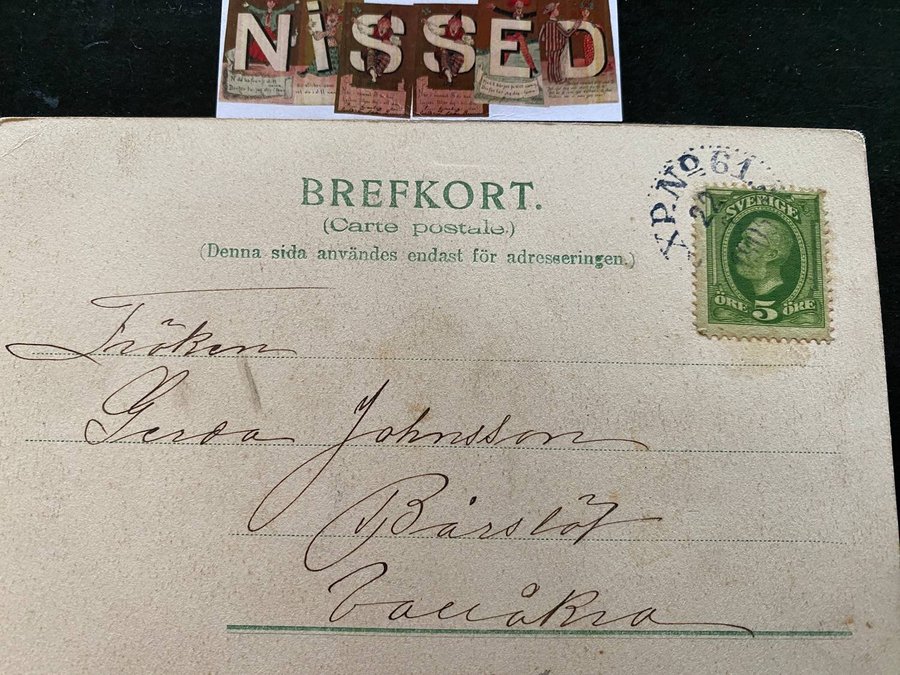 NISSED
BREFKORT.
(Carte postale.)
(Denna sida användes endast för adresseringen.)
XP.No 61.
22
SVERIGE
ÖRE 5 ÖRE
Fröken
Gerda Johnsson
Bårslöf
Vallåkra